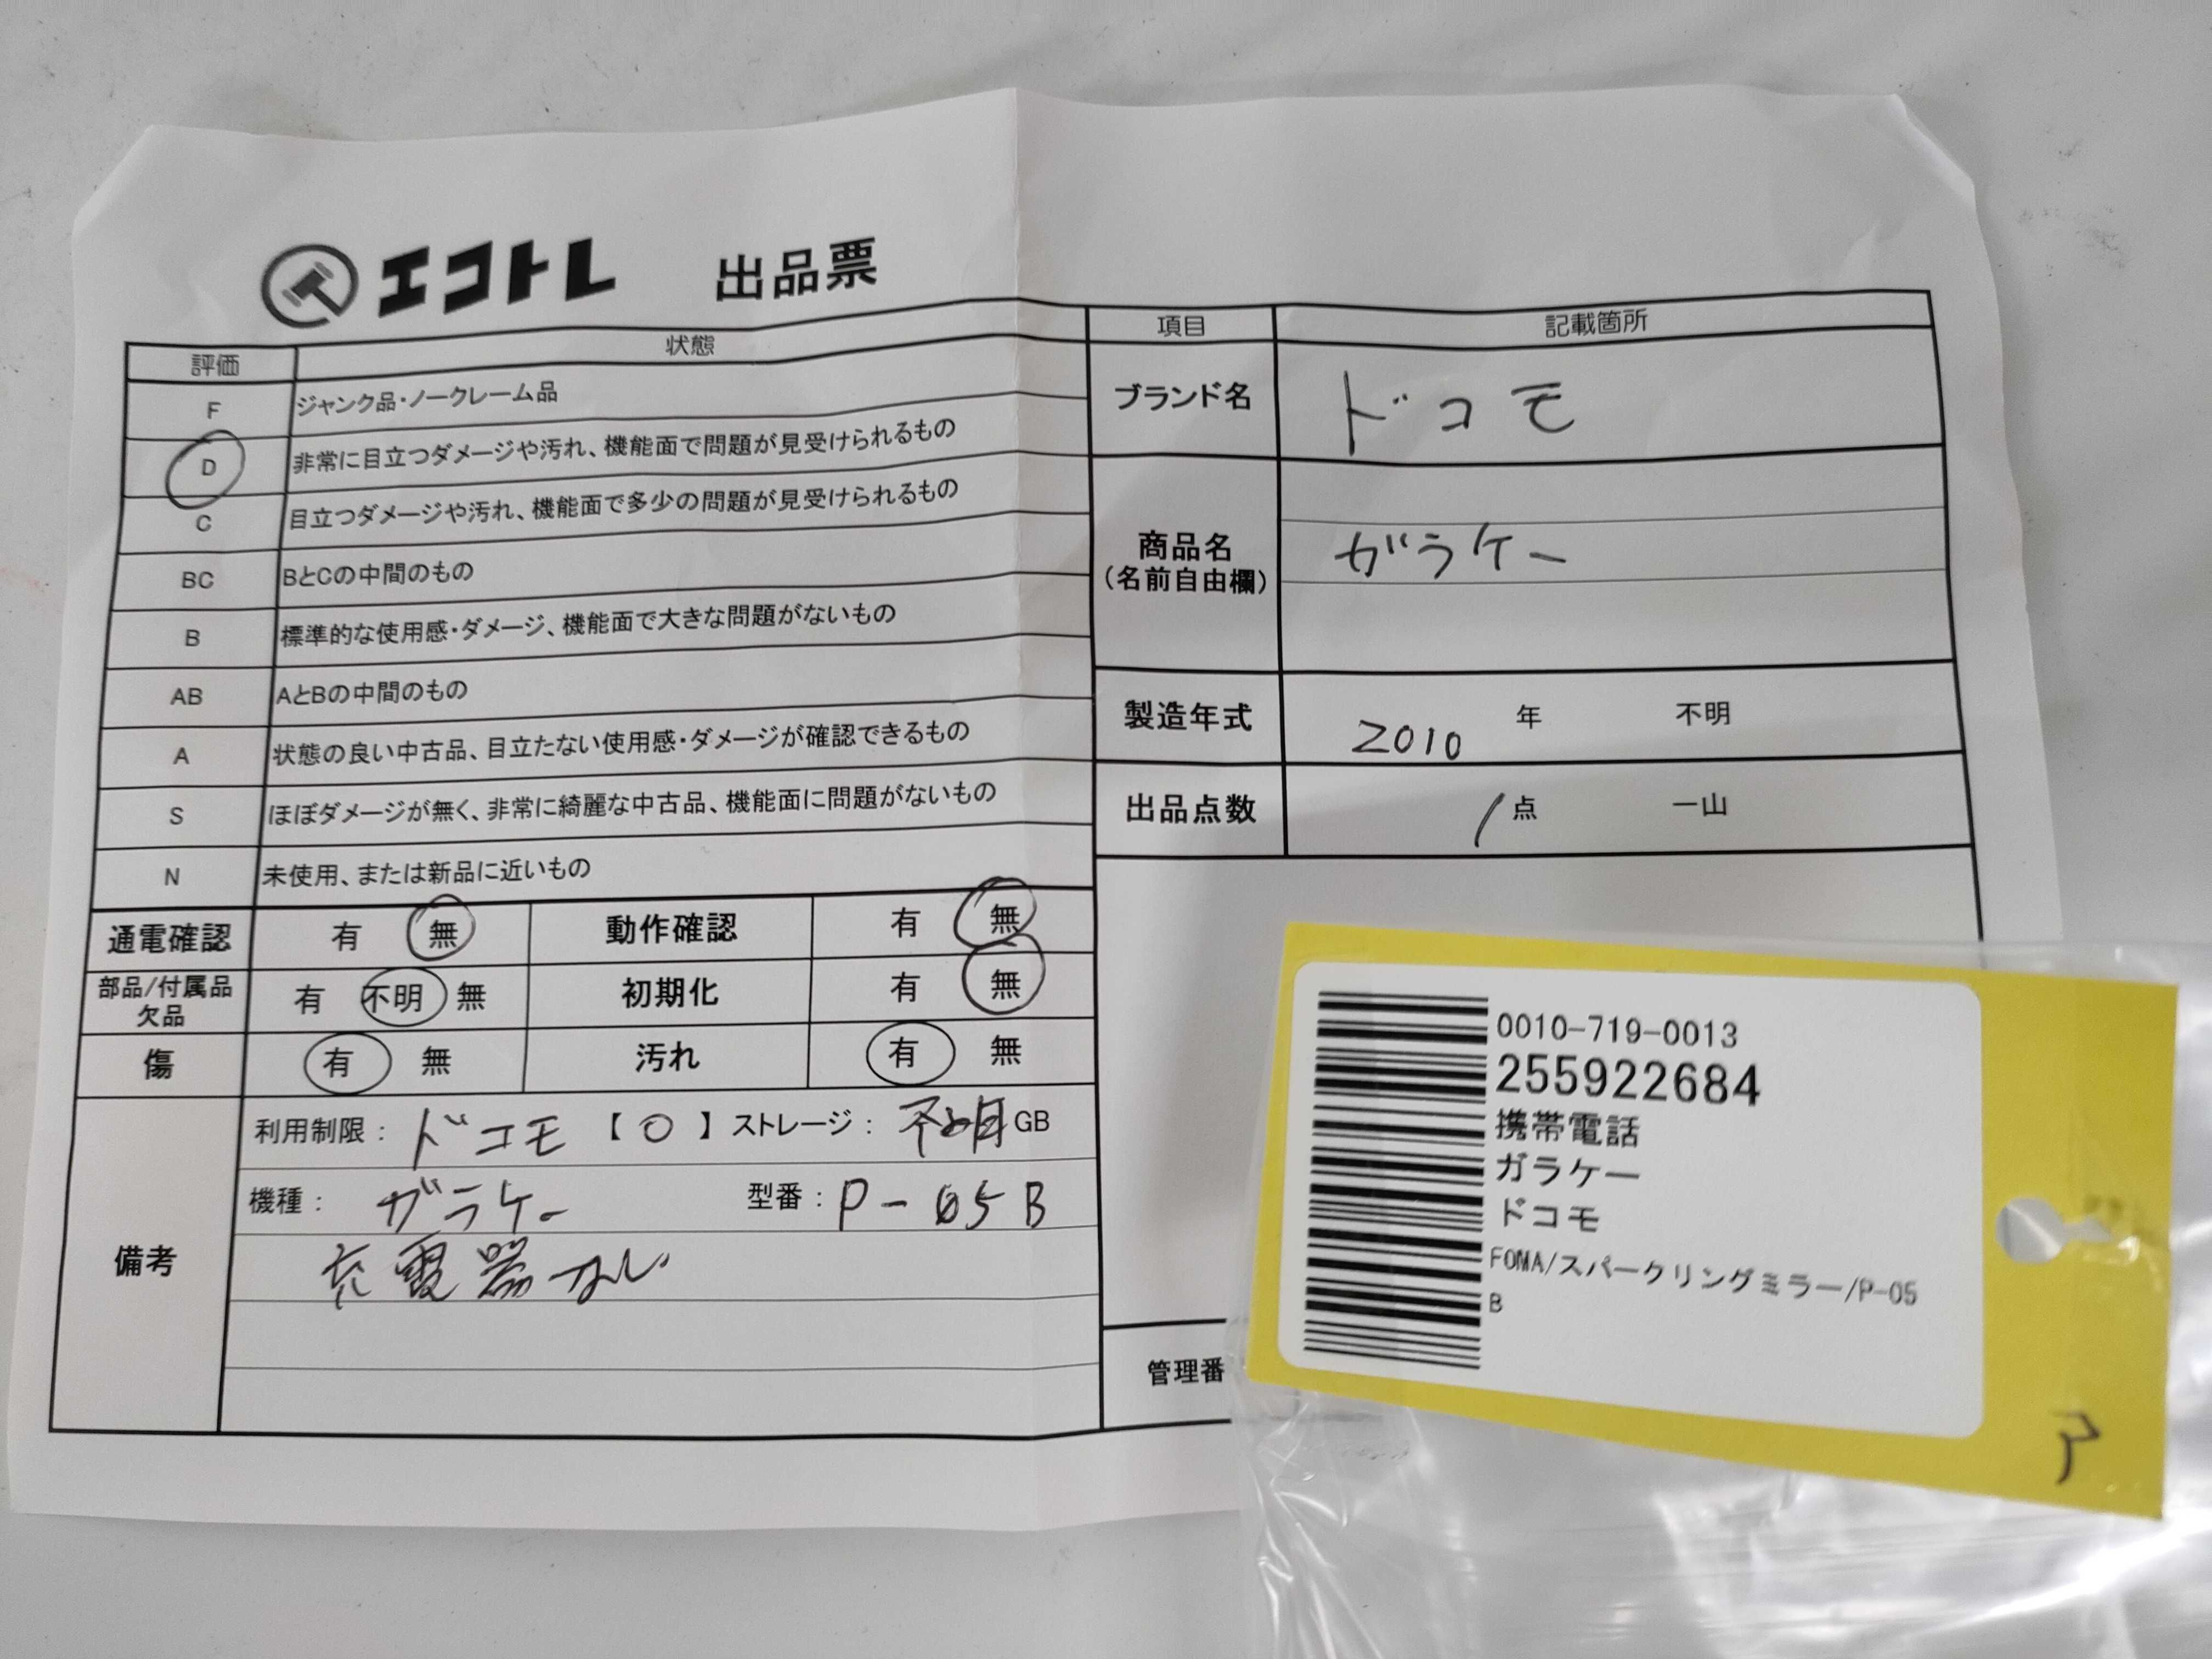 エコトレ 出品票
評価 状態
F ジャンク品・ノークレーム品
D 非常に目立つダメージや汚れ、機能面で問題が見受けられるもの
C 目立つダメージや汚れ、機能面で多少の問題が見受けられるもの
BC BとCの中間のもの
B 標準的な使用感・ダメージ、機能面で大きな問題がないもの
AB AとBの中間のもの
A 状態の良い中古品、目立たない使用感・ダメージが確認できるもの
S ほぼダメージが無く、非常に綺麗な中古品、機能面に問題がないもの
N 未使用、または新品に近いもの
通電確認 有 無 動作確認 有 無
部品/付属品
欠品 有 不明 無 初期化 有 無
傷 有 無 汚れ 有 無
備考
利用制限: ドコモ 【○】 ストレージ: 不明 GB
機種: ガラケー 型番: P-05B
充電器なし
項目 記載箇所
ブランド名 ドコモ
商品名
(名前自由欄) ガラケー
製造年式 2010 年 不明
出品点数 1 点 一山
管理番
0010-719-0013
255922684
携帯電話
ガラケー
ドコモ
FOMA/スパークリングミラー/P-05
B